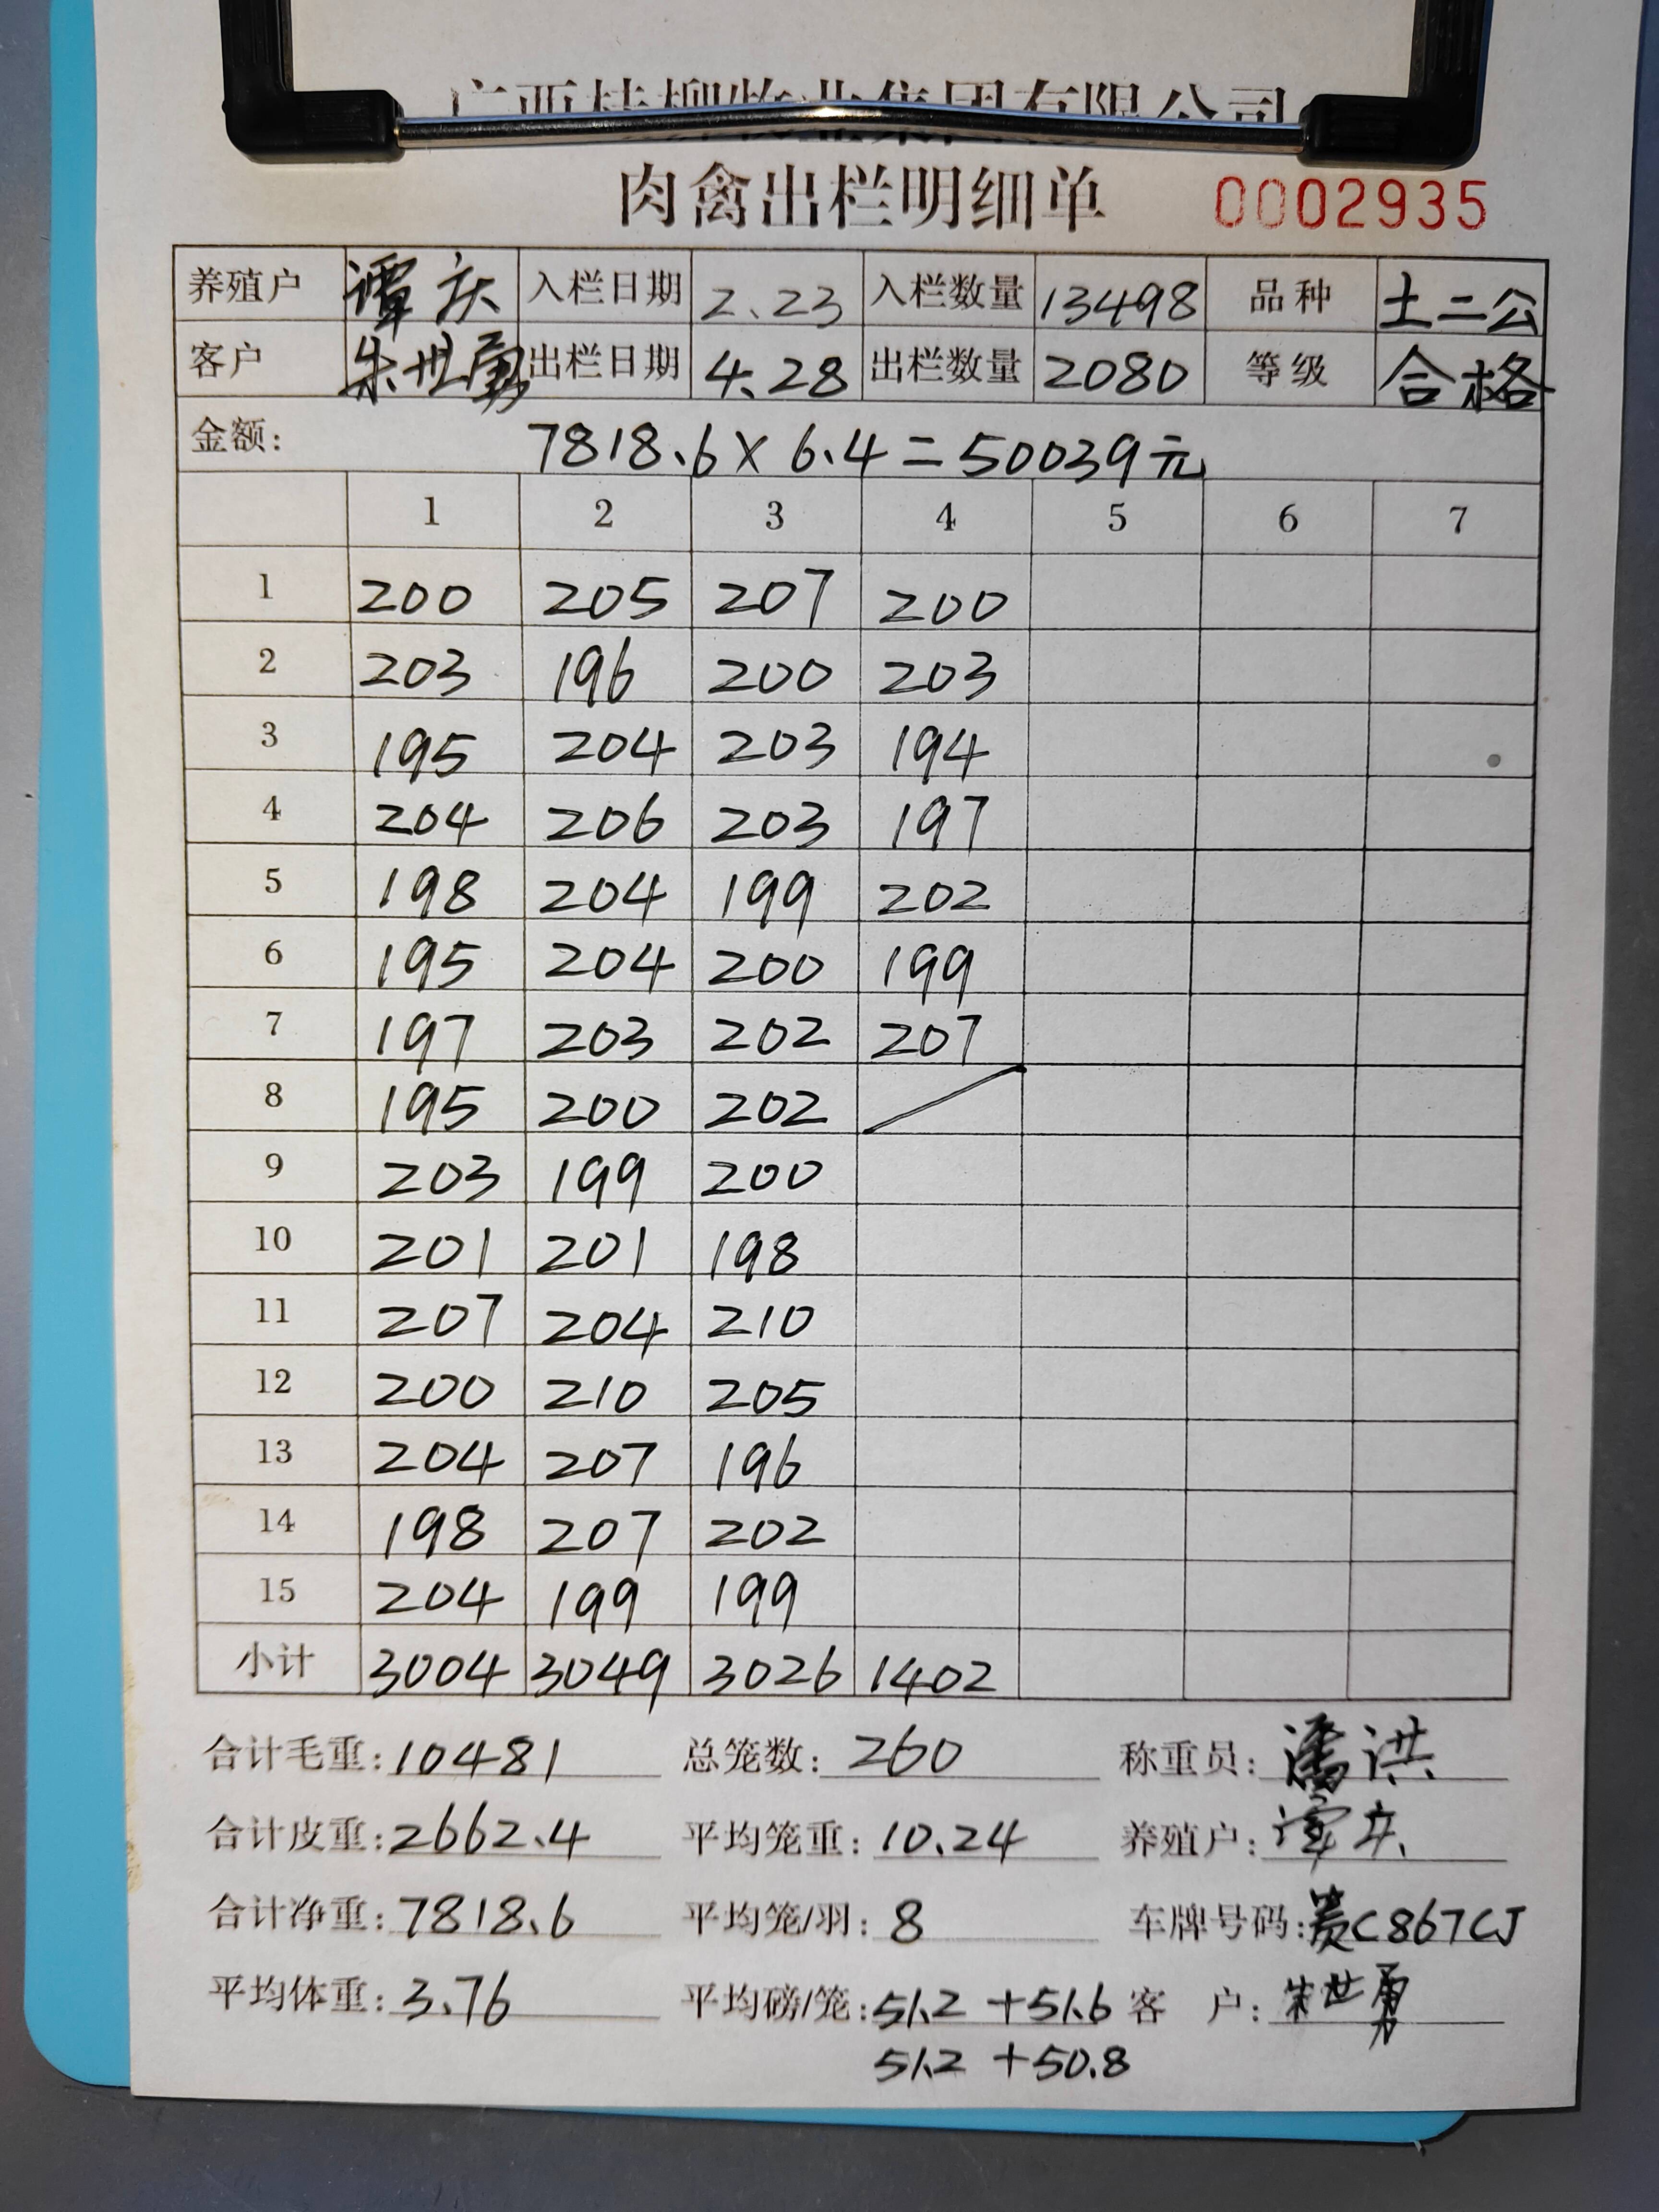 肉禽出栏明细单 0002935
养殖户 谭庆 入栏日期 2.23 入栏数量 13498 品种 土二公
客户 朱世勇 出栏日期 4.28 出栏数量 2080 等级 合格
金额: 7818.6×6.4=50039元
1 2 3 4 5 6 7
1 200 205 207 200
2 203 196 200 203
3 195 204 203 194
4 204 206 203 197
5 198 204 199 202
6 195 204 200 199
7 197 203 202 207
8 195 200 202
9 203 199 200
10 201 201 198
11 207 204 210
12 200 210 205
13 204 207 196
14 198 207 202
15 204 199 199
小计 3004 3049 3026 1402
合计毛重:10481 总笼数:260 称重员:潘洪
合计皮重:2662.4 平均笼重:10.24 养殖户:谭庆
合计净重:7818.6 平均笼/羽:8 车牌号码:贵C867CJ
平均体重:3.76 平均磅/笼:51.2 +51.6 客 户:朱世勇
51.2 +50.8